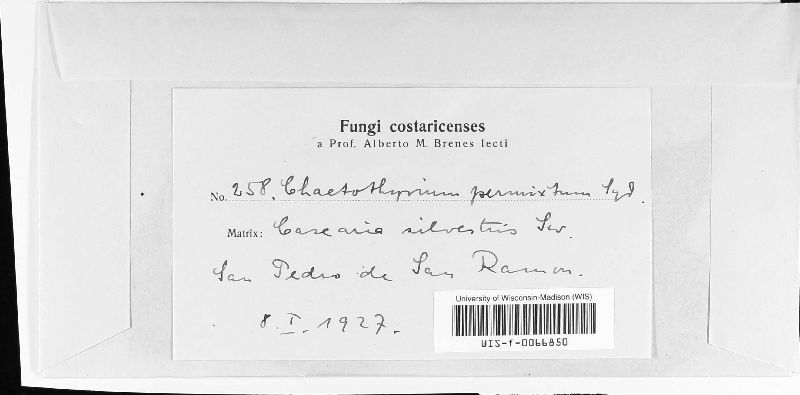 Fungi costaricenses
a Prof. Alberto M. Brenes lecti
No. 258. Chaetothyrium permixtum Syd.
Matrix: Casearia silvestris Sw.
San Pedro de San Ramon.
8. I. 1927.
University of Wisconsin-Madison (WIS)
WIS-f-0066850